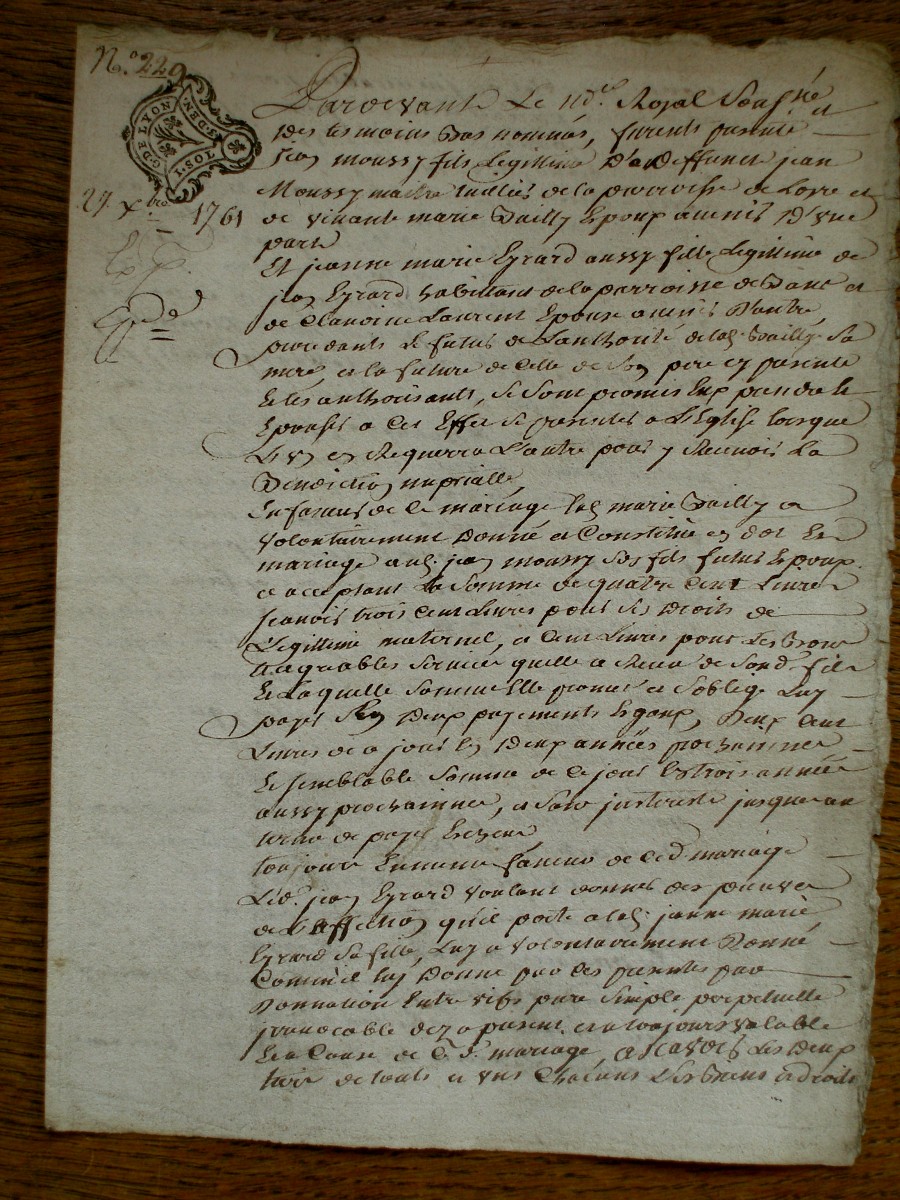 N.° 229
G. DE LYON
10 S. T. 8. DEN.
27 xbre 1761
Exp.
Expédé
Pardevant Le nore. Royal Soussné et
Des temoins Bas nommés, furent presents
jean moussy fils Legittime D'a Deffunct jean
Moussy maitre tuillier de la parroisse de Loyre et
de vivante marie Bailly Epoux avenir D'vne
part
Et jeanne marie Eyrard aussy fille Legittime de
jean Eyrard habittant de la parroisse de et
de Claudine Laurent Epouse avenir D'autre,
procedants Le futur de L'authorité de lad. Bailly Sa
mere, et la future de Celle de Son pere icy presents
et les authorisants, Se Sont promis Eux prendre et
Epouser a Cet Effet Se presenter a L'Eglise lorsque
L'vn en Requerra L'autre pour y Recevoir La
Benediction nuptialle,
En faveur de Ce mariage lad. marie Bailly a
Volontairement Donné et Constitué en dot En
mariage aud. jean moussy Son fils futur Epoux
ce acceptant La Somme de quatre Cent Livres
scavoir trois Cent Livres pour Ses Droits de
Legittime maternel, et Cent Livres pour Les Bons
et agreables Services quelle a Receu de Sond. fils
Et Laquelle Somme Elle promet et S'oblige Luy
payer En Deux payements Egaux, Deux Cent
Livres de ce jour En Deux années prochaines
Et Semblable Somme de Ce jour En trois années
aussy prochaines, et Sans jusques au
terme de payer
toujours En meme faveur de Ced. mariage
Led. jean Eyrard voulant donner des preuves
de L'affection qu'il porte a lad. jeanne marie
Eyrard Sa fille, Luy a volontairement Donné
Comme il luy Donne par Ces presentes par
Donnation Entre vifs pure Simple perpetuelle
jrrevocable dez a present et a toujours valable
Et a Cause de Ced. mariage, a Scavoir Les Deux
tiers de touts et vns Chacuns Ses Biens et droits